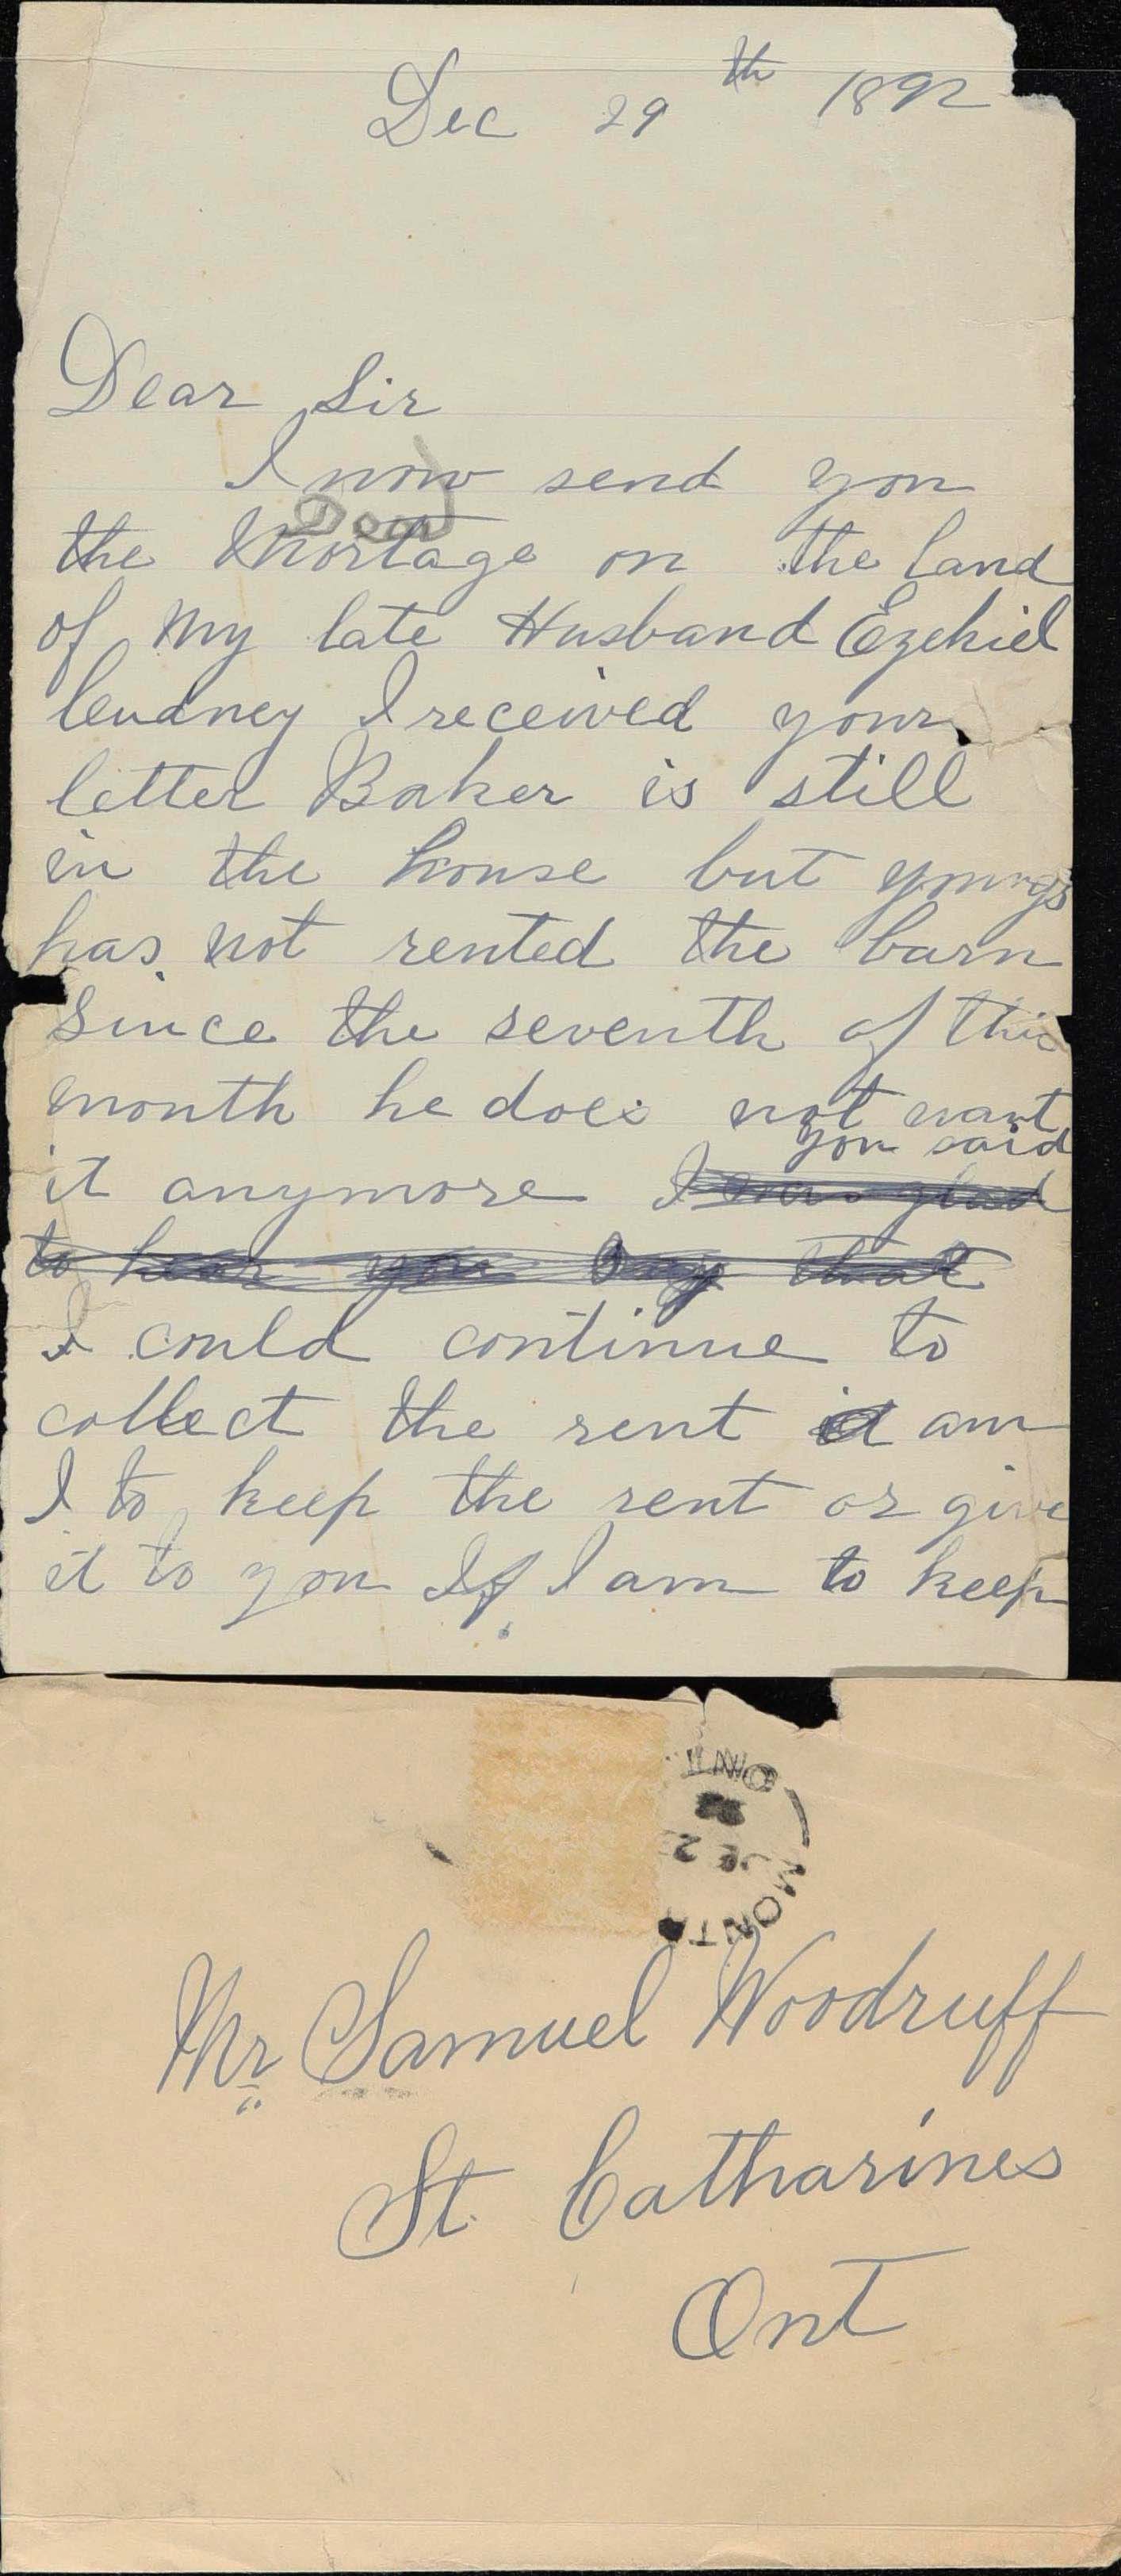 Dec 29th 1892
Dear Sir
I now send you
Deed
the Mortage on the land
of My late Husband Ezekiel
Cudney I received your
letter Baker is still
in the house but youngs
has not rented the barn
Since the seventh of this
month he does not want
you said
it anymore I was glad
to hear you say that
I could continue to
collect the rent am
I to keep the rent or give
it to you If I am to keep
ONT
DE 2
MONT
Mr Samuel Woodruff
St. Catharines
Ont